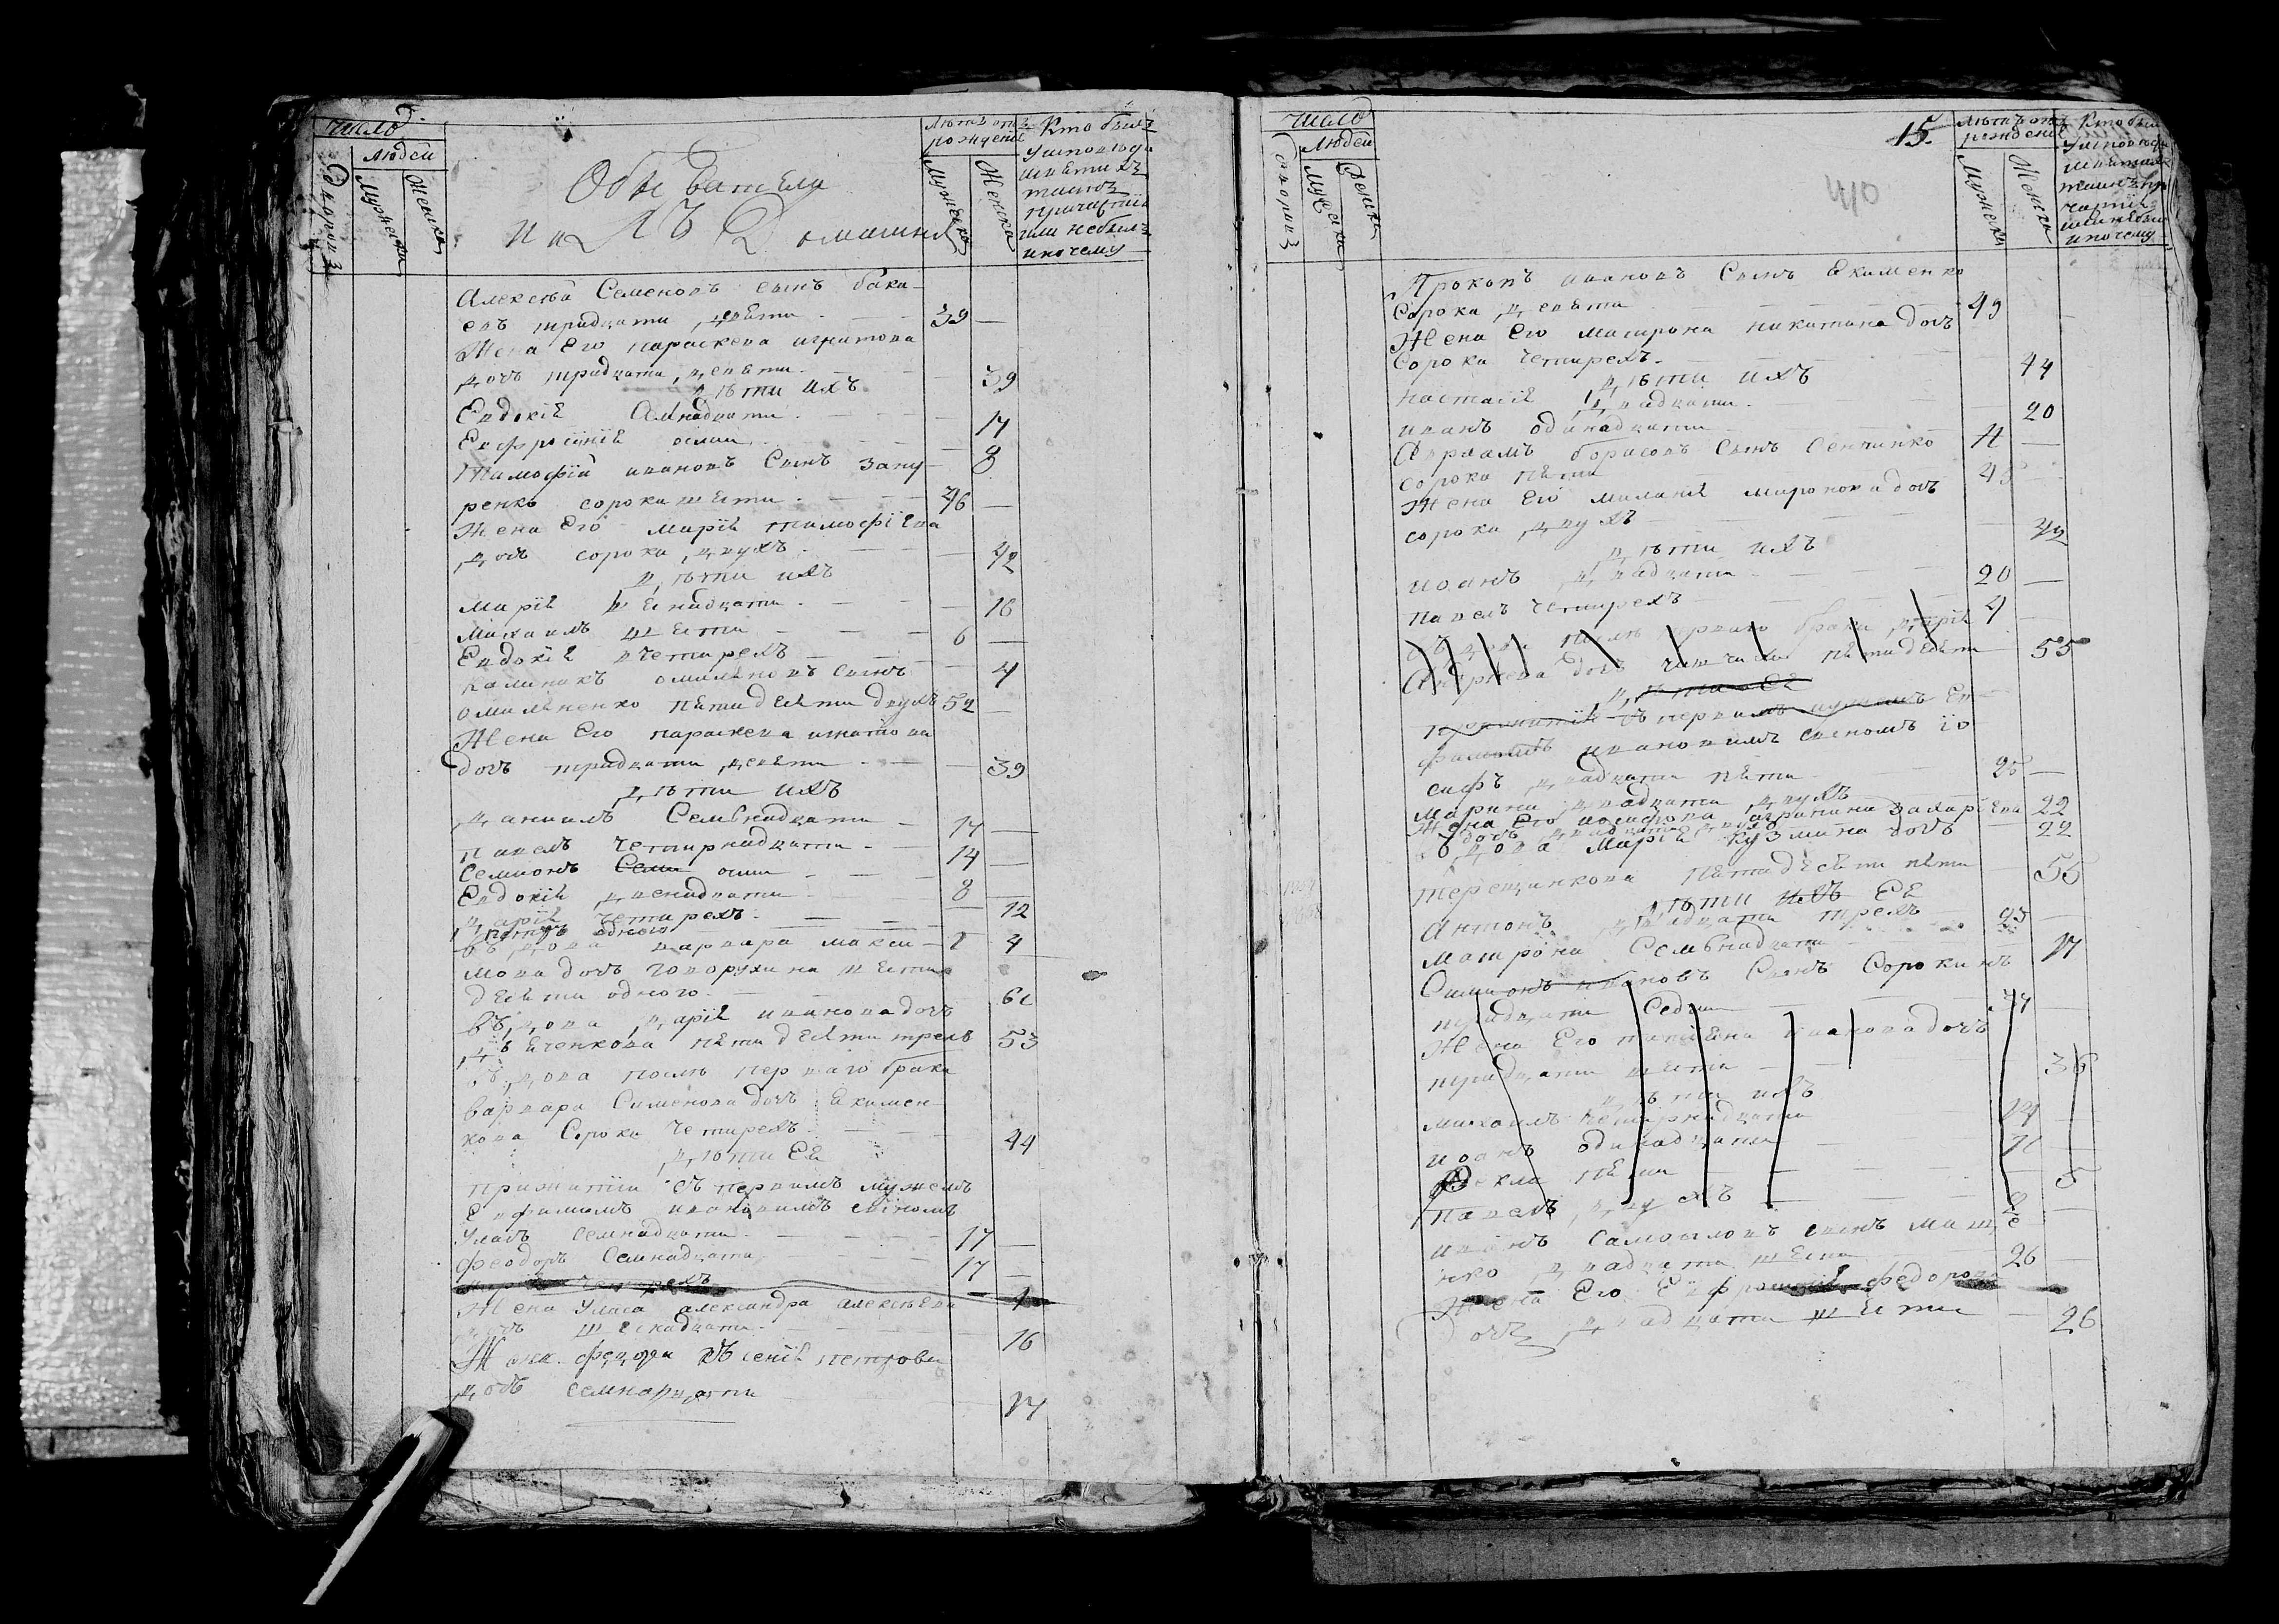 Число
Людей
Дворовъ
Мужеска
Женска
Обыватели
и ихъ Домашнія
Лѣтъ отъ рожденія
Мужеска
Женска
Кто былъ
у исповѣди
и святыхъ
таинъ
причастія
или небылъ
и почему
Алексѣй Семеновъ сынъ
тридцяти девяти 39
Жена Его параскева игнатова
дочь тридцати девяти 39
дѣти ихъ
Евдокія 17
Евфросинія осми 8
Тимофій ивановъ Сынъ
сорока шести 46
Жена Его Марія тимофіева
дочь сорока двухъ 42
дѣти ихъ
Марія шеснадцати 16
Михаилъ шести 6
Евдокія четирехъ 4
Калиникъ омиляновъ сынъ
омиляненко пятидесяти двухъ 52
Жена Его параскева игнатова
дочь тридцати девяти 39
дѣти ихъ
Даниилъ Семьнадцати 17
Павелъ Четирнадцати 14
Семионъ Семи осми 8
Евдокія двенадцати 12
Дарія Четирехъ 4
Петръ одного 1
вѣдова варвара макси
мова дочь говорухина шести
десяти одного 61
вѣдова дарія иванова дочь
пятидесяти трехъ 53
вѣдова послѣ перваго брака
варвара Симеонова дочь Якимен
кова Сорока Четирехъ 44
дѣти Ея
прижитіи съ первимъ мужемъ
Евфимомъ ивановимъ синомъ
Уласъ семнадцати 17
Феодоръ Семнадцати 17
Четирехъ 4
Жена Уласа александра алексѣева
дочь шеснадцати 16
Жена федора Ксенія петрова
дочь семнадцати 17
Число
Людей
Дворовъ
Мужеска
Женска
15.
40
Лѣтъ отъ
рожденія
Мужеска
Женска
Кто былъ
у исповѣди
и святыхъ
таинъ при
частія
или небылъ
и почему
Прокопъ ивановъ Сынъ Якименко
Сорока девяти 49
Жена Его матрона никитина дочь
Сорока Четирехъ 44
дѣти ихъ
настасія двадцати 20
иванъ одинадцати 11
Авраамъ борисовъ Сынъ Сенчинко
сорока пяти 45
Жена Его миланія миронова дочь
сорока двухъ 42
дѣти ихъ
иоанъ двадцати 20
павелъ Четирехъ 4
вѣдова послѣ перваго брака
дочь пятидесяти 55
дѣти Ея
съ первимъ мужемъ
ивановимъ синомъ іо
сифъ двадцати пяти 25
Марина двадцати двухъ 22
Жена Его иосифова агрипина захаріева
дочь двадцати двухъ 22
вдова Марія кузмина дочь
терещинкова пятидесяти пяти 55
дѣти ихъ Ея
Антонъ двадцати трехъ 23
Матрона Семьнадцати 17
Симионъ ивановъ Сынъ Сорокинъ
тридцати Седми 37
Жена Его татіяна иванова дочь
тридцати шести 36
дѣти ихъ
михаилъ Четирнадцати 14
иоанъ одинадцати 11
Фекла пяти 5
Павелъ двухъ 2
иванъ Самоиловъ сынъ маще
нко двадцати шести 26
Жена Его Евфросинія федорова
дочь двадцати шести 26